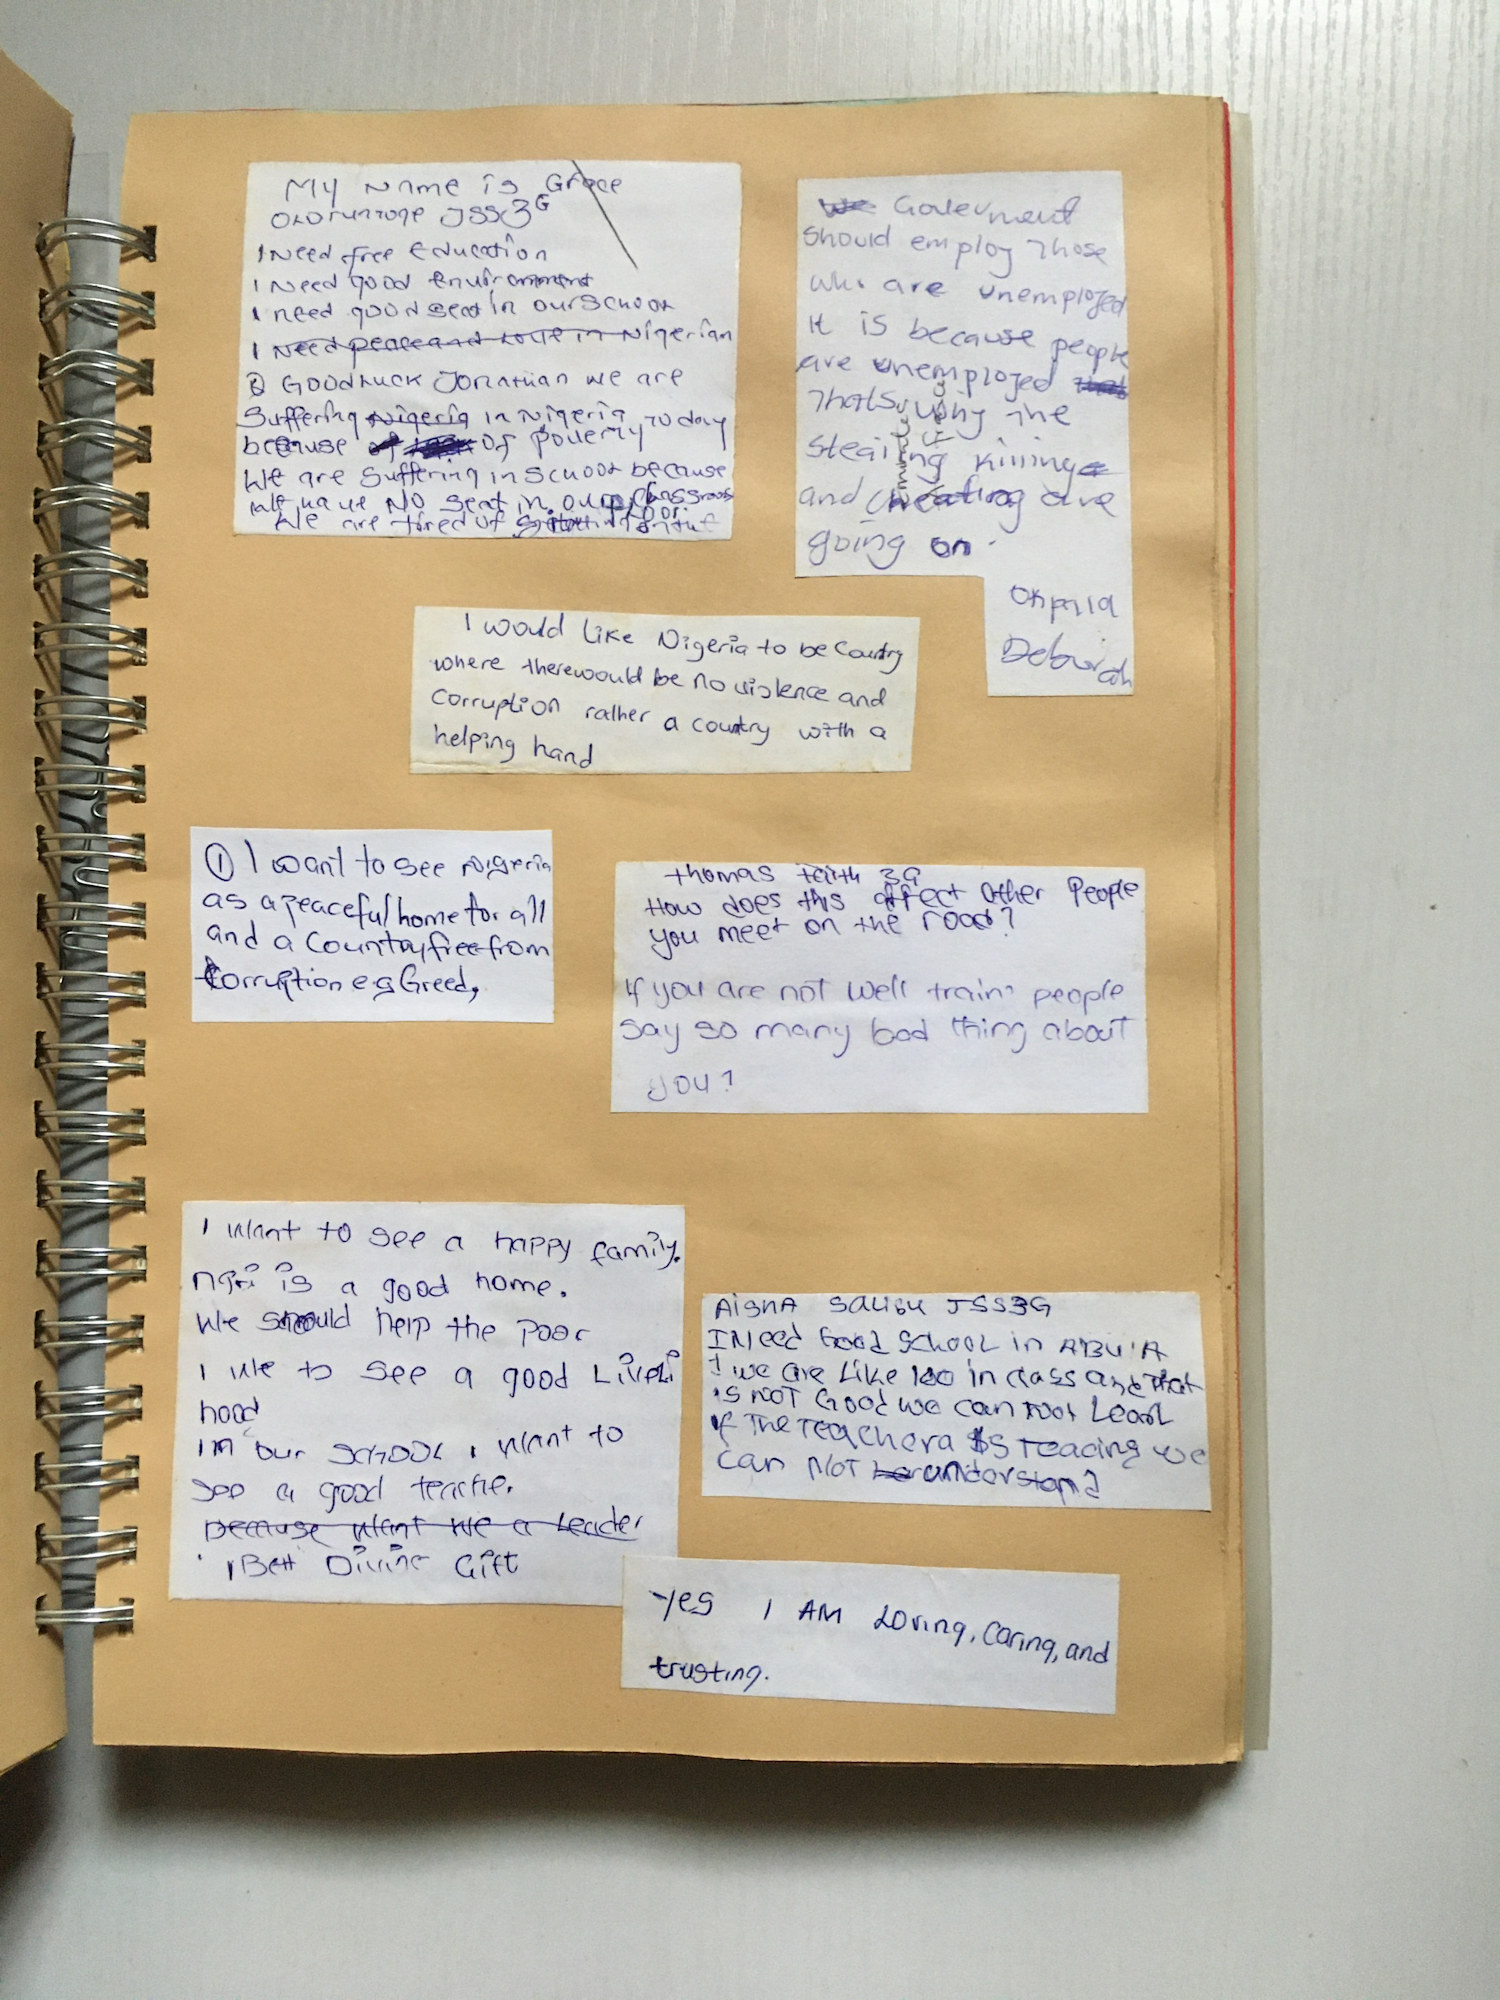 My Name is Grace
JSS3G
I Need free Education
I Need good environment
I need good seat in our school
I Need peace and love in Nigerian
Goodluck Jonathan we are
Suffering Nigeria in Nigeria today
because of of poverty
We are Suffering in school because
we have No seat in our classroom
We are tired of
We Government
should employ those
who are unemployed
It is because people
are unemployed that
Thats why the
stealing killing
and cheating are
going on.
Deborah
I would like Nigeria to be Country
where therewould be no violence and
corruption rather a country with a
helping hand
① I want to see Nigeria
as a peaceful home for all
and a Country free from
Corruption e.g Greed,
Thomas faith 3G
How does this affect other People
you meet on the road?
If you are not well train people
say so many bad thing about
you?
I want to see a happy family.
is a good home.
We should help the poor
I like to see a good Liveli
hood
In our school I want to
see a good teache.
because want we a Leader
Divine Gift
AishA Salisu JSS3G
I Need Good School in ABUJA
we are Like 100 in class and that
is NOT Good we can not Learn
if The Teachera is Teacing we
can NOT understand
Yes I AM Loving, Caring, and
trusting.